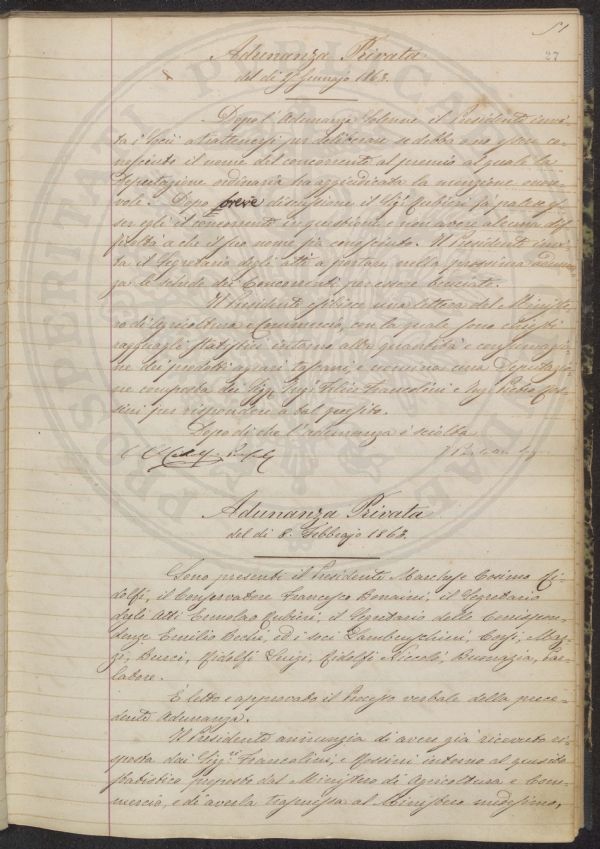 51
27
Adunanza Privata
del dì 9 Gennajo 1863.
Dopo l'Adunanza Solenne il Presidente invi-
ta i Socii a trattenersi per deliberare se debba o no esser co-
nosciuto il nome del concorrente al premio al quale la
Deputazione ordinaria ha aggiudicata la menzione onore-
vole. Dopo breve discussione il Sig. Rubieri fa palese es-
ser egli il concorrente in questione e non avere alcuna dif-
ficoltà a che il suo nome sia conosciuto. Il Presidente invi-
ta il Segretario degli atti a portare nella prossima adunan-
za le schede dei Concorrenti per essere bruciate.
Il Presidente esibisce una lettera del Ministe-
ro di Agricoltura e Commercio, con la quale sono chiesti
ragguagli statistici intorno alla quantità e consumazio-
ne dei prodotti agrari toscani, e nomina una Deputazio-
ne composta dei Sigg. Ing. Felice Francolini e Ing. Pietro Ros-
sini per rispondere a tal quesito.
Dopo di che l'adunanza è sciolta
Adunanza Privata
del dì 8. Febbrajo 1863.
Sono presenti il Presidente Marchese Cosimo Ri-
dolfi, il Conservatore Francesco Bonaini, il Segretario
degli Atti Ermolao Rubieri, il Segretario delle Corrispon-
denze Emilio Cecchi, ed i soci Lambruschini, Corsi, Maz-
zi, Burci, Ridolfi Luigi, Ridolfi Niccolò, Buonazia, Par-
latore.
È letto e approvato il Processo verbale della prece-
dente Adunanza.
Il Presidente annunzia di avere già ricevuto ri-
sposta dai Sigg.ri Francolini, e Rossini intorno al quesito
statistico proposto dal Ministero di Agricoltura e Com-
mercio, e di averla trasmessa al Ministero medesimo,